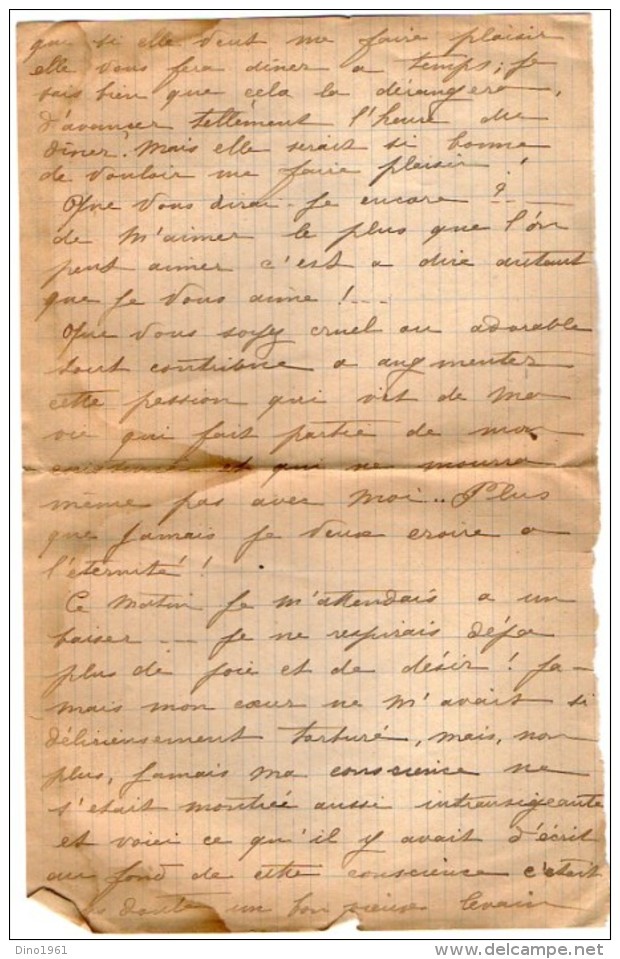 que si elle veut me faire plaisir
elle vous fera dîner a temps; Je
sais bien que cela la dérangera,
d'avancer tellement l'heure du
dîner! mais elle serait si bonne
de vouloir me faire plaisir!
Que vous dirai-je encore ? -
de m'aimer le plus que l'on
peut aimer c'est a dire autant
que Je vous aime ! --
Que vous soyez cruel ou adorable
tout contribue a augmenter
cette passion qui vit de ma
vie qui fait partie de mon
existence et qui ne mourra
même pas avec moi.. Plus
que Jamais Je veux croire a
l'éternité!
Ce matin Je m'attendais a un
baiser -- Je ne respirais déja
plus de joie et de désir! Ja-
mais mon cœur ne m'avait si
délirieusement torturé, mais, non
plus, Jamais ma conscience ne
s'était montrée aussi intransigeante
et voici ce qu'il y avait d'écrit
au fond de cette conscience c'était
doute un bon vieux levain
Dino1961